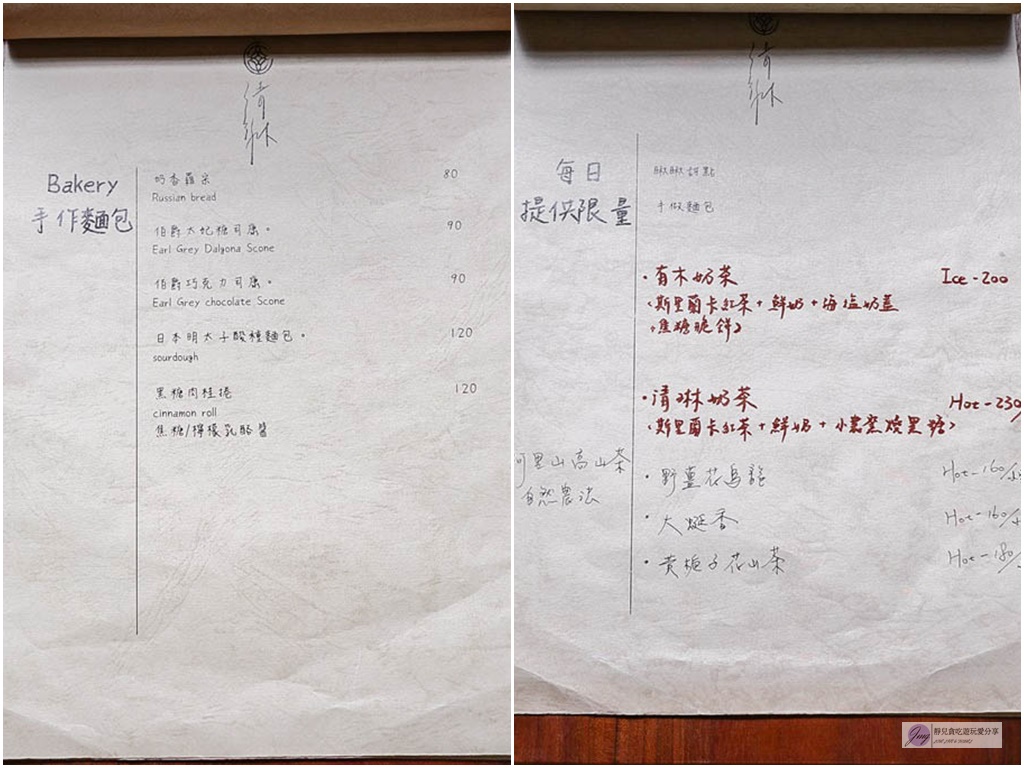 Bakery
手作麵包
奶香羅宋
80
Russian bread
伯爵太妃糖司康。
90
Earl Grey Dalgona Scone
伯爵巧克力司康。
90
Earl Grey chocolate Scone
日本明太子酸種麵包。
120
sourdough
黑糖肉桂捲
120
cinnamon roll
焦糖/檸檬乳酪醬
每日
提供限量
啾啾甜點
手做麵包
·有木奶茶
Ice-200
(斯里蘭卡紅茶+鮮奶+海塩奶蓋
+焦糖脆餅)
·清 奶茶
Hot-230/
(斯里蘭卡紅茶+鮮奶+小農窯燒黑糖)
阿里山高山茶
自然農法
·野薑花烏龍
Hot-160/
·大 香
Hot-160/
·黃梔子花山茶
Hot-180/
靜兒貪吃遊玩愛分享